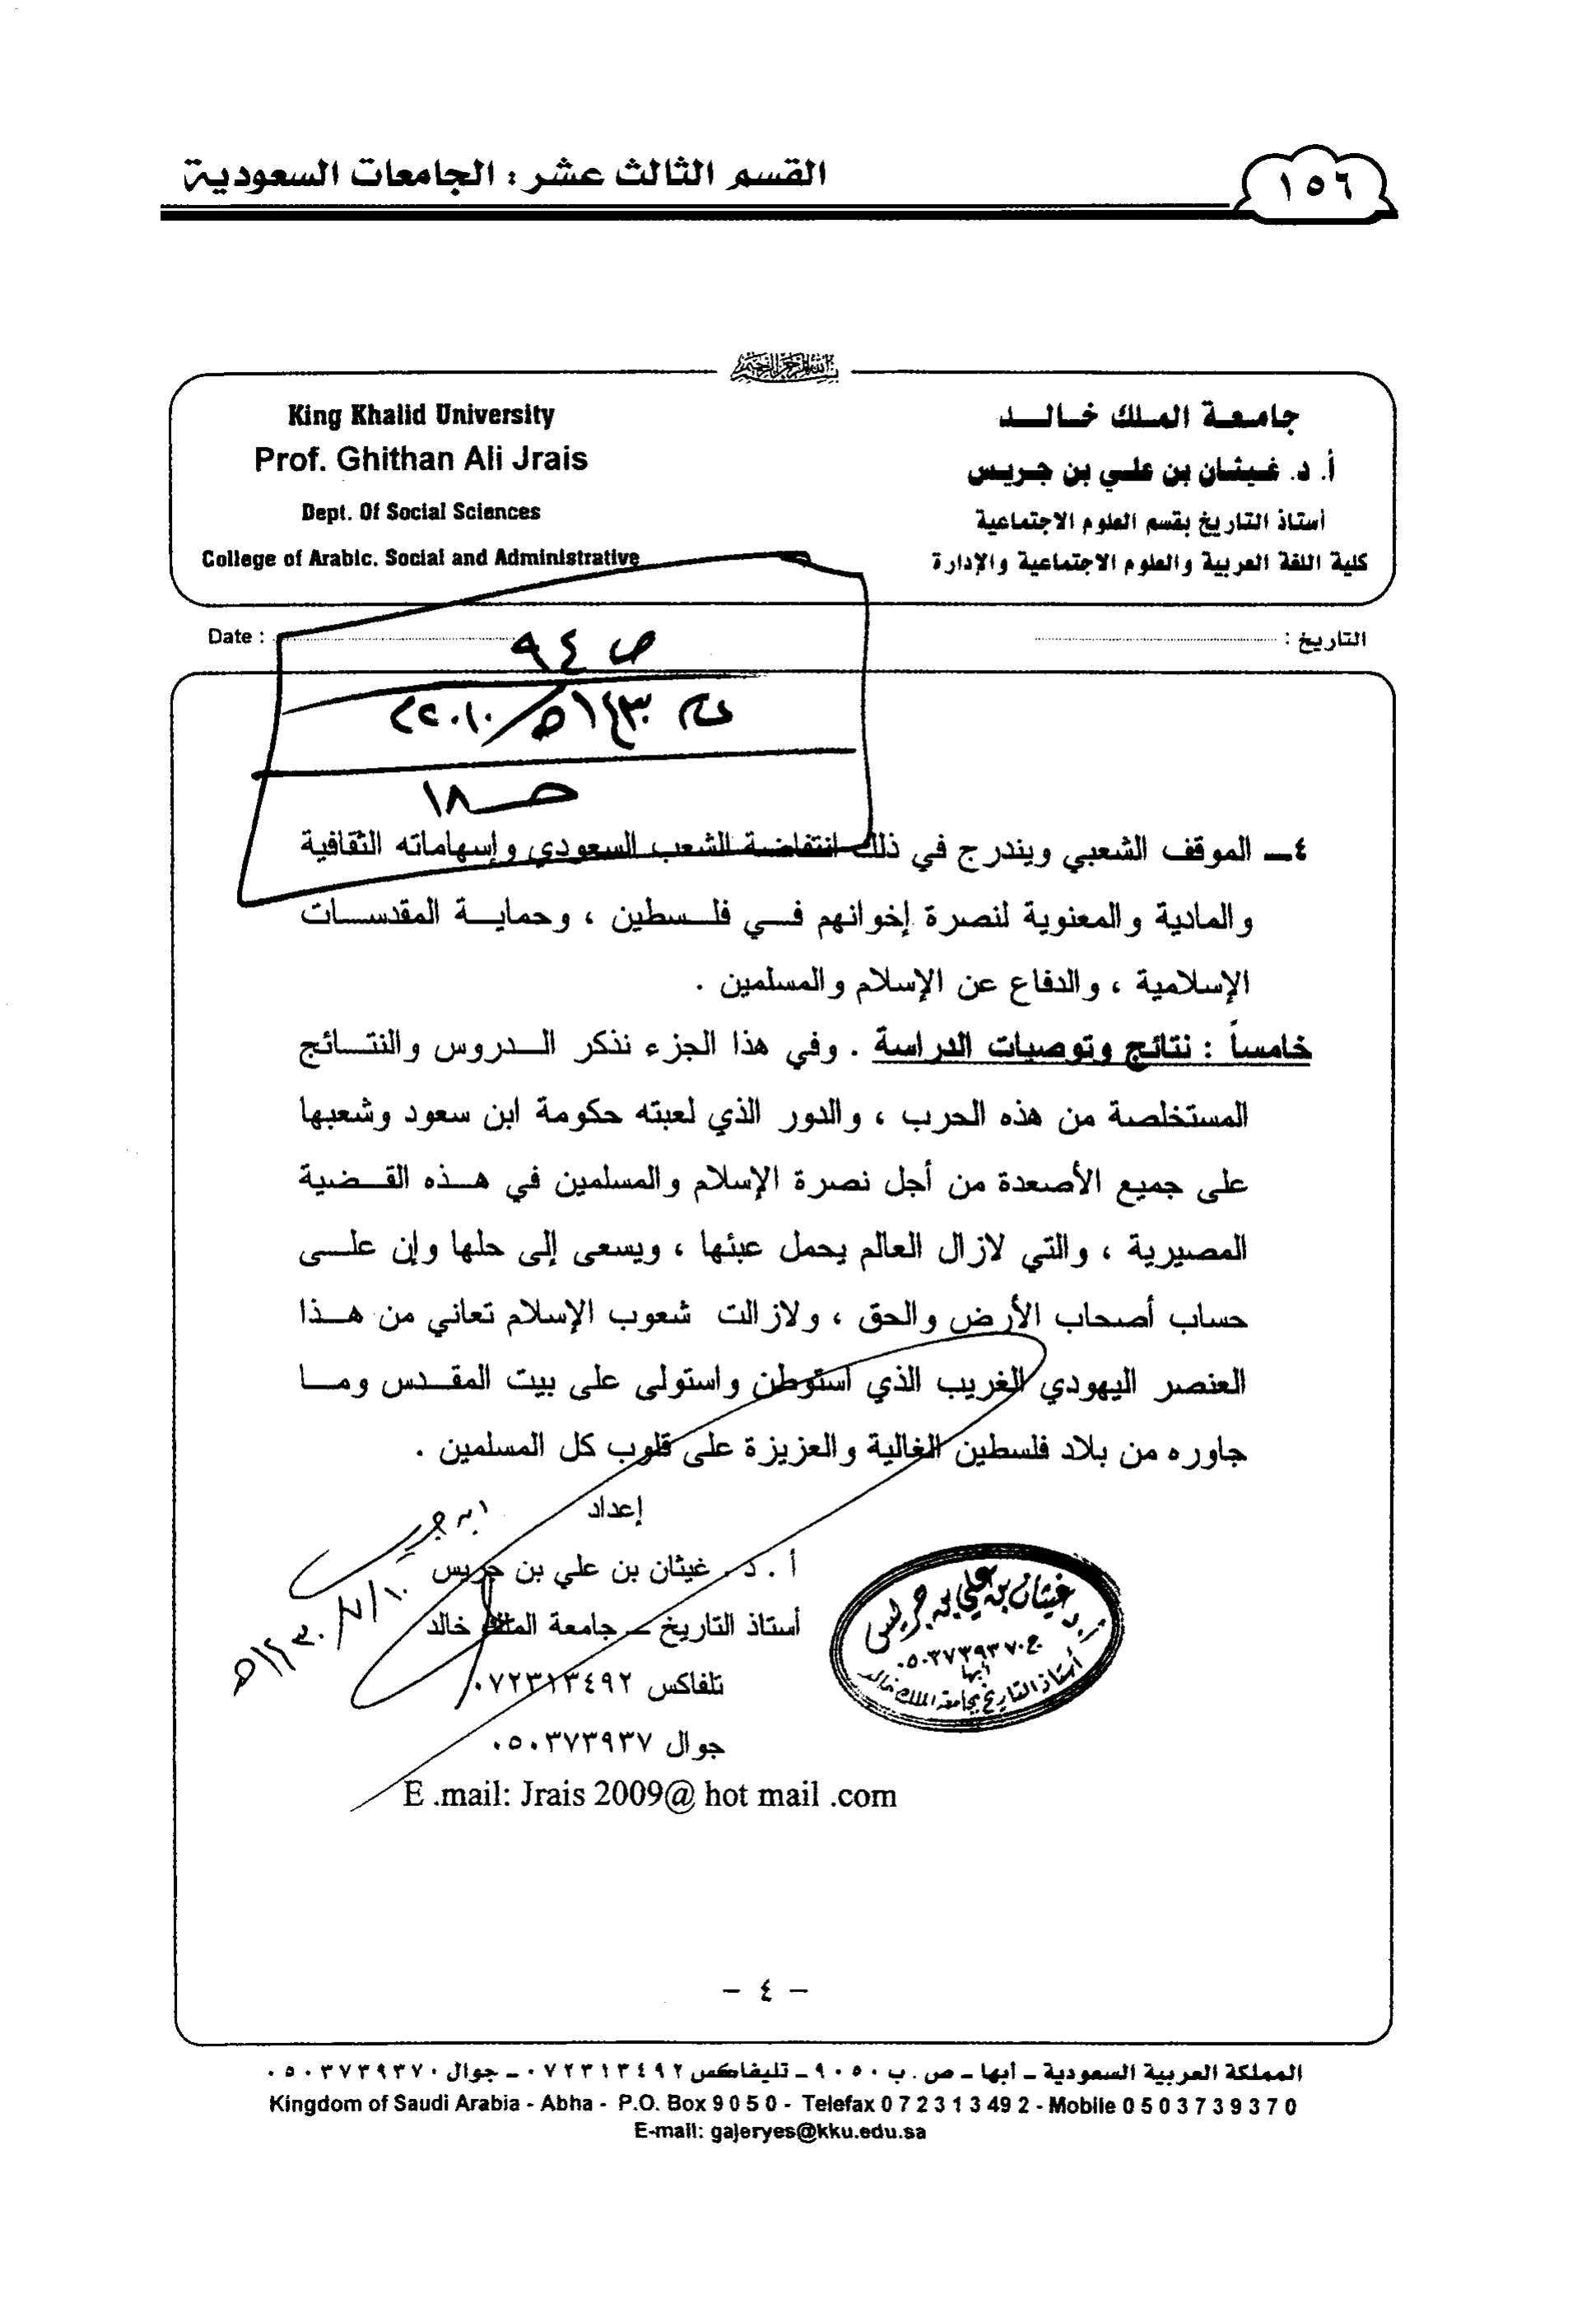 القسم الثالث عشر : الجامعات السعودية
١٥٦
بسم الله الرحمن الرحيم
جامعة الملك خالد
أ. د. غيثان بن علي بن جريس
أستاذ التاريخ بقسم العلوم الاجتماعية
كلية اللغة العربية والعلوم الاجتماعية والإدارة
King Khalid University
Prof. Ghithan Ali Jrais
Dept. Of Social Sciences
College of Arabic. Social and Administrative
التاريخ :
Date :
ص ٩٤
١٤٣٠هـ/٢٠١٠م
١٨
٤ــ الموقف الشعبي ويندرج في ذلك انتفاضة الشعب السعودي وإسهاماته الثقافية
والمادية والمعنوية لنصرة إخوانهم في فلسطين ، وحماية المقدسات
الإسلامية ، والدفاع عن الإسلام والمسلمين .
خامساً : نتائج وتوصيات الدراسة . وفي هذا الجزء نذكر الدروس والنتائج
المستخلصة من هذه الحرب ، والدور الذي لعبته حكومة ابن سعود وشعبها
على جميع الأصعدة من أجل نصرة الإسلام والمسلمين في هذه القضية
المصيرية ، والتي لازال العالم يحمل عبئها ، ويسعى إلى حلها وإن على
حساب أصحاب الأرض والحق ، ولازالت شعوب الإسلام تعاني من هذا
العنصر اليهودي الغريب الذي استوطن واستولى على بيت المقدس وما
جاوره من بلاد فلسطين الغالية والعزيزة على قلوب كل المسلمين .
إعداد
أ . د . غيثان بن علي بن جريس
أستاذ التاريخ – جامعة الملك خالد
تلفاكس ٠٧٢٣١٣٤٩٢
جوال ٠٥٠٣٧٣٩٣٧
E .mail: Jrais 2009@ hot mail .com
ابن جريس
١٠/٧/١٤٣٠هـ
أ.د غيثان بن علي بن جريس
ج ٠٥٠٣٧٣٩٣٧٠
أبها
أستاذ التاريخ بجامعة الملك خالد
- ٤ -
المملكة العربية السعودية – أبها – ص . ب ٩٠٥٠ – تليفاكس ٠٧٢٣١٣٤٩٢ – جوال ٠٥٠٣٧٣٩٣٧٠
Kingdom of Saudi Arabia - Abha - P.O. Box 9 0 5 0 - Telefax 0 7 2 3 1 3 49 2 - Mobile 0 5 0 3 7 3 9 3 7 0
E-mail: gajeryes@kku.edu.sa